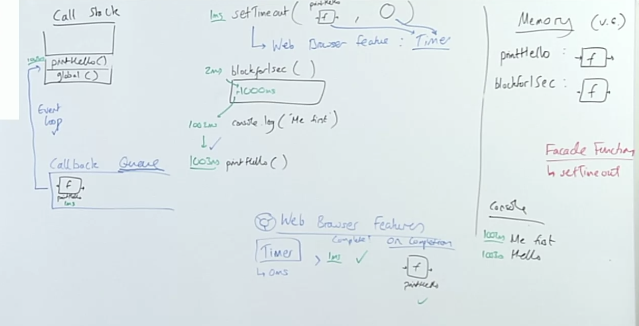 Call Stack
printHello()
global()
Event
Loop
Callback Queue
f
printHello
1ms
1ms setTimeout( f , 0 )
printHello
↳ Web Browser feature : Timer
2ms blockfor1Sec( )
+1000ms
1002ms console.log("Me first")
1003ms printHello()
Web Browser Features
Timer
↳ 0ms
Complete?
1ms ✓
On Completion
f
printHello
✓
Memory (v.e)
printHello : f
blockfor1Sec : f
Facade Function
↳ setTimeout
Console
Me first
Hello